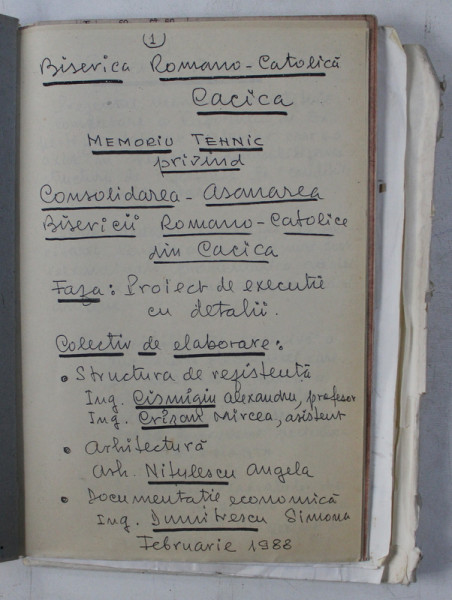 (1)
Biserica Romano-Catolică
Cacica
MEMORIU TEHNIC
privind
Consolidarea - Asanarea
Bisericii Romano-Catolice
din Cacica
Faza: Proiect de execuție
cu detalii.
Colectiv de elaborare:
• Structura de rezistență
Ing. Cișmigiu Alexandru, profesor
Ing. Crișan Mircea, asistent
• Arhitectură
Arh. Nițulescu Angela
• Documentație economică
Ing. Dumitrescu Simona
Februarie 1988